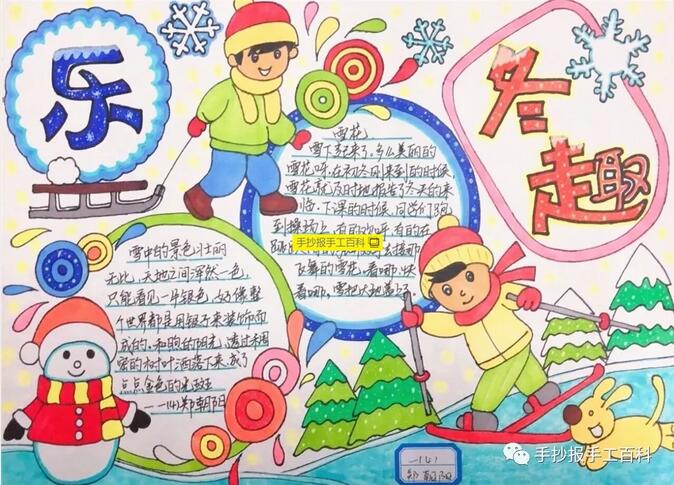 乐
冬
趣
雪花
雪下起来了,多么美丽的
雪花呀,在初冬刚来到的时候,
雪花就及时地报告了冬天的来
临。下课的时候,同学们跑
到操场上,有的欢呼,有的在
手抄报手工百科
飞舞的雪花。看哪!快
看哪,雪把大地盖
雪中的景色壮丽
无比,天地之间浑然一色,
只能看见一片银色,好像整
个世界都是用银子来装饰而
成的。和煦的阳光,透过稠
密的树叶洒落下来,成了
点点金色的光斑
一(4)郑朝阳
一(4)
郑朝阳
手抄报手工百科